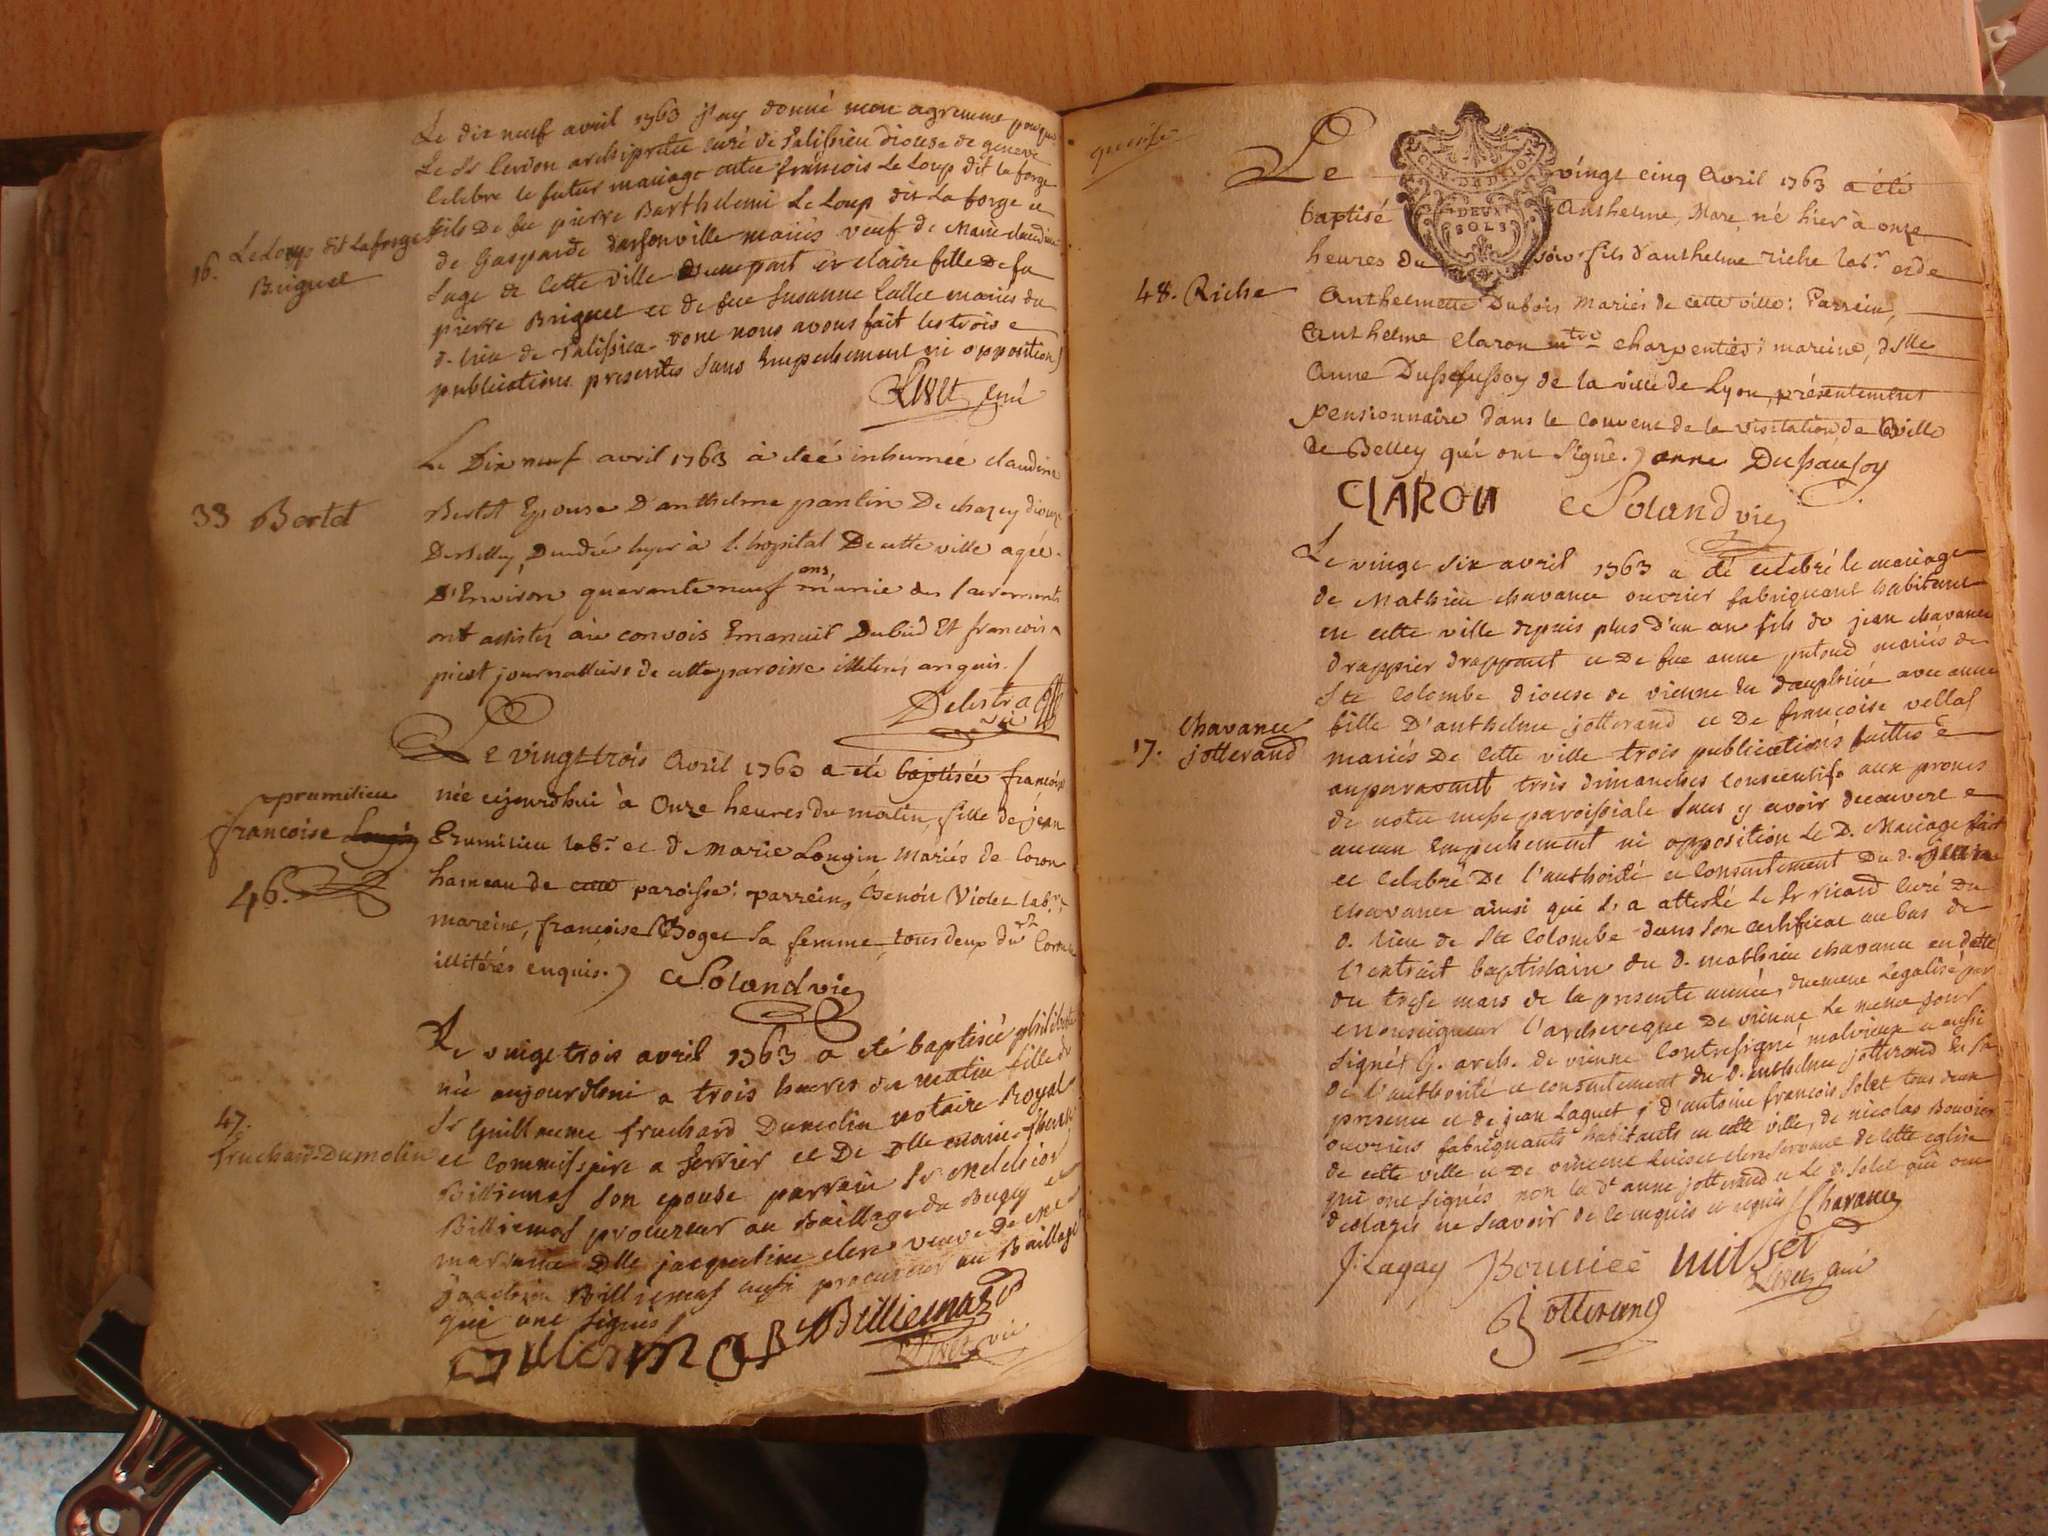 Le dix neuf avril 1763 j'ay donné mon agrement pour que
Le Sr Cerdon archiprêtre curé de Palissieu diocese de geneve
celebre le futur mariage entre françois Le Loup dit la forge
fils De feu pierre Barthelemi Le Loup dit La forge et
16. Le Loup dit La forge
Briguet
de Gasparde mariés veuf de Marie claudine
Juge de cette ville d'une part et claire fille De feu
pierre Briguet et de feue Susanne Callet mariés du
d. lieu de dont nous avons fait les trois
publications presentes sans Empechement ni opposition
Livet curé
33 Bertet
Le Dix neuf avril 1763 à eteé inhumée claudine
Bertet Epouse D'anthelme pantin De chazey diocese
De Belley, Decedée hyer à l'hopital De cette ville agée
D'Environ quarante neuf ans munie des sacrements
ont assistés au convois Emanuel Dubud Et francois
piest journalliers de cette paroisse illiteres anquis
Delestra
vic
Le vingt trois Avril 1763 a eté baptisée françoise
née aujourdhui à Onze heures du matin, fille de jean
prumilieu
francoise Longin
46.
Prumilieu labr. et de Marie Longin mariés de Coron
hameau de cette paroisse: parrein, Benoit Violet labr.
mareine, françoise Boget sa femme, tous deux du dt Coron
illitérés enquis.) Soland vic
47.
fruchard-Dumolin
Le vingt trois avril 1763 a eté baptisée philiberte
née aujourdhui a trois heures du matin fille de
Sr Guillaume fruchard Dumolin notaire Royal
et Commissaire a terrier et De Dlle marie
Billiemas son epouse parrain Sr melchior
Billiemas procureur au Baillage du Bugey et
marraine Dlle jacqueline clerc veuve De me
Billiemas aussi procureur au Baillage
qui ont signés
Billiemaz
Livet vic
Le vingt cinq Avril 1763 a été
baptisé Anthelme, Marc, né hier à onze
heures du soir, fils d'anthelme riche labr. et de
GEN. DE DIJON
DEUX
SOLS
48. Riche
Anthelmette Dubois Mariés de cette ville: Parrein,
Anthelme Claron mtre charpentier; mareine, dslle
Anne Dussaussoy de la ville de Lyon, présentement
pensionnaire dans le couvent de la visitation de la ville
de Belley qui ont signé.) anne Dussausoy
CLARON Soland vic
Le vingt six avril 1763 a été celebré le mariage
de Mathieu chavance ouvrier fabriquant habitant
en cette ville depuis plus d'un an fils de jean chavance
drappier drappant et De feue anne putoud mariés de
Ste Colombe diocese de vienne en dauphiné avec anne
17. Chavance
jotterand
fille D'anthelme jotterand et De françoise vellas
mariés De cette ville trois publications faittes
auparavant trois dimanches consecutifs aux prones
de notre messe paroissiale sans y avoir decouvert
aucun Empechement ni opposition Le D. Mariage fait
et celebré De l'authorité et consentement Du d. jean
chavance ainsi que l'a attesté le Sr ricard curé du
d. lieu de Ste Colombe dans son certificat au bas de
l'extrait baptistaire du d. mathieu chavance en datte
du treize mars de la presente année, duement Legalisé par
monseigneur l'archeveque De vienne Le meme jour
signé G. arch. de vienne Contresigné malvieux et aussi
de l'authorité et consentement du d. anthelme jotterand En sa
presence et de jean Laguet, d'antoine françois Solet tous deux
ouvriers fabriquants habitants en cette ville, de nicolas Bouvier
de cette ville et De vincent clerc servant de cette eglise
qui ont signés non la dt anne jotterand et Le d. Solet qui ont
declarés ne scavoir de ce enquis et requis Chavance
J: Lagay Bouvier
Livet curé
Jotterand